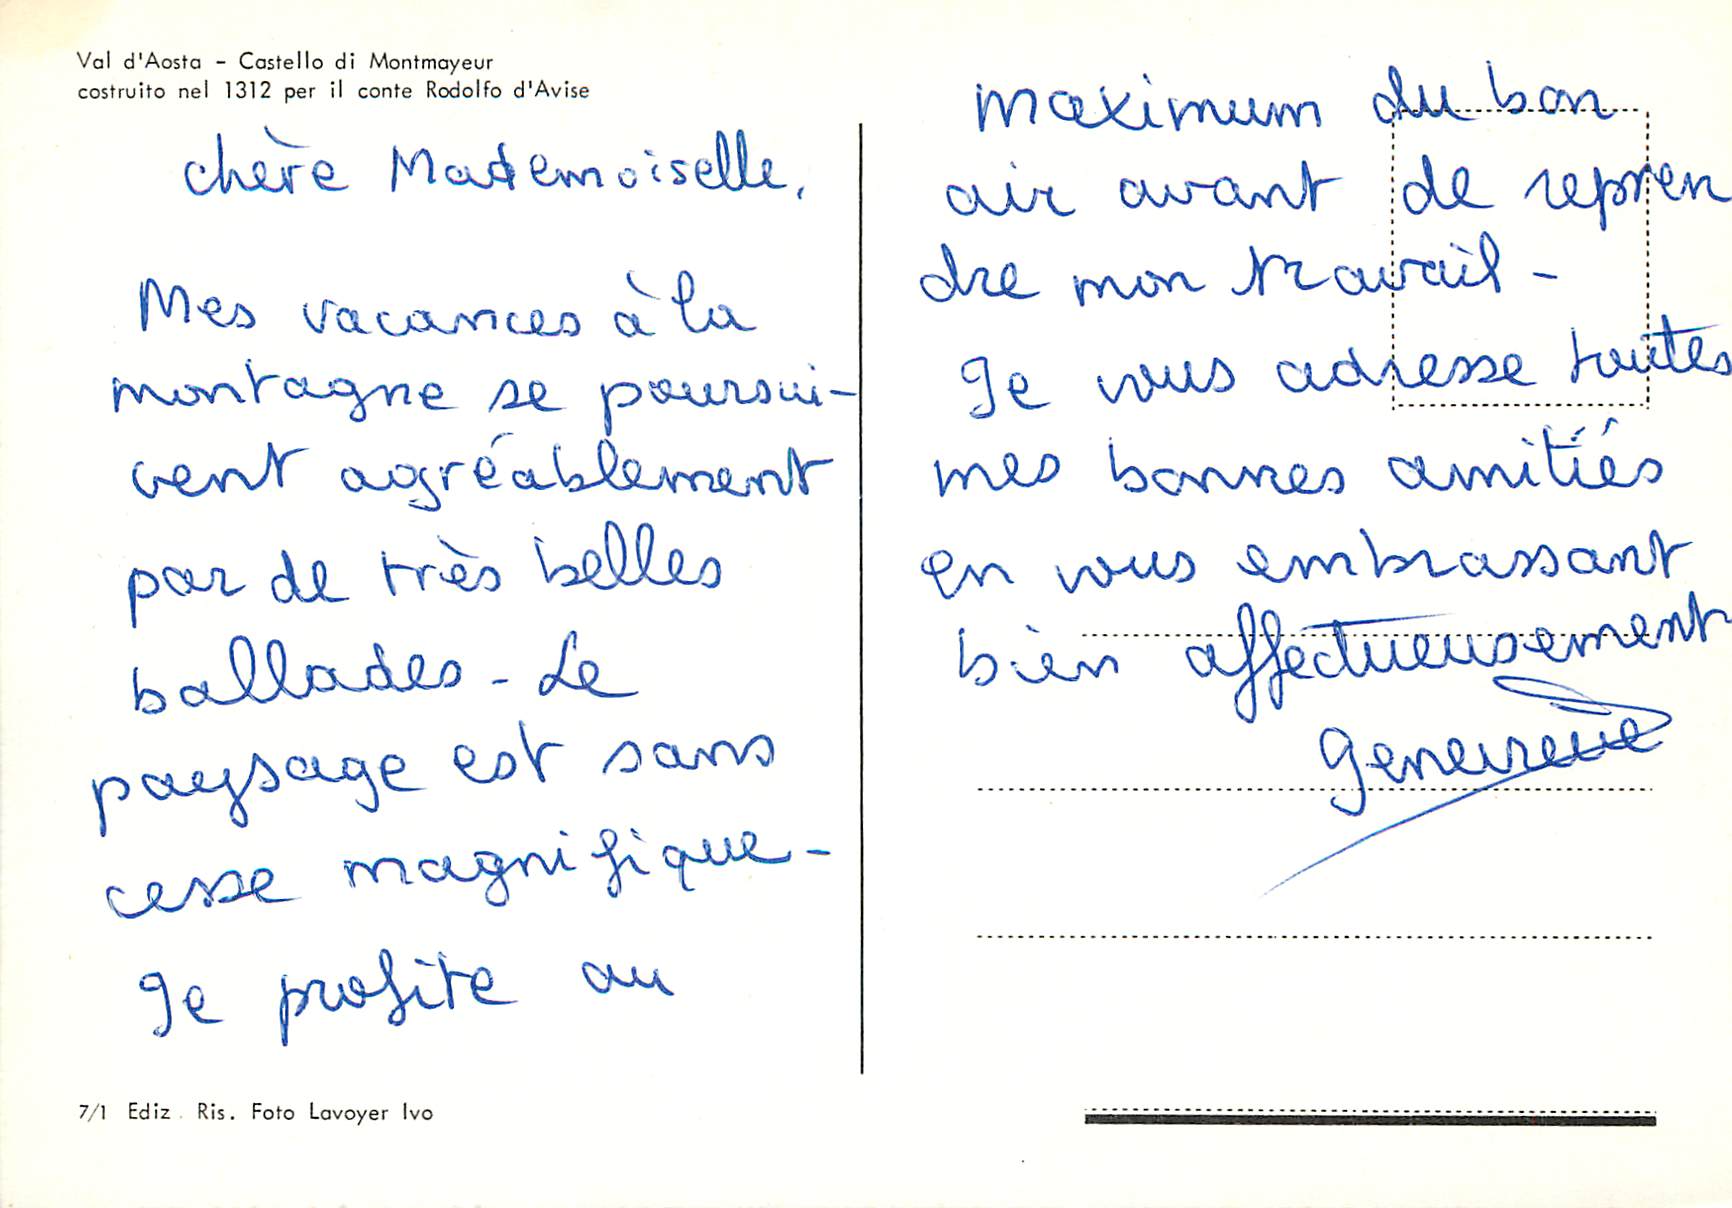 Val d'Aosta - Castello di Montmayeur
costruito nel 1312 per il conte Rodolfo d'Avise
chère Mademoiselle,
Mes vacances à la
montagne se poursui-
vent agréablement
par de très belles
ballades - Le
paysage est sans
cesse magnifique -
Je profite au
7/1 Ediz. Ris. Foto Lavoyer Ivo
maximum du bon
air avant de repren
dre mon travail -
Je vous adresse toutes
mes bonnes amitiés
en vous embrassant
bien affectueusement
Geneviève